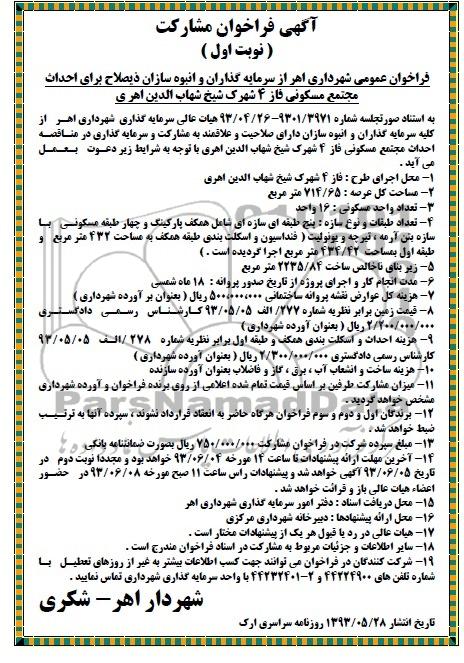 آگهی فراخوان مشارکت
( نوبت اول )
فراخوان عمومی شهرداری اهر از سرمایه گذاران و انبوه سازان ذیصلاح برای احداث
مجتمع مسکونی فاز ۴ شهرک شیخ شهاب الدین اهری
به استناد صورتجلسه شماره ۹۳۰۱/۳۹۷۱-۹۳/۰۴/۲۶ هیات عالی سرمایه گذاری شهرداری اهر از
کلیه سرمایه گذاران و انبوه سازان دارای صلاحیت و علاقمند به مشارکت و سرمایه گذاری در مناقصه
احداث مجتمع مسکونی فاز ۴ شهرک شیخ شهاب الدین اهری با توجه به شرایط زیر دعوت بعمل
می آید .
۱- محل اجرای طرح : فاز ۴ شهرک شیخ شهاب الدین اهری
۲- مساحت کل عرصه : ۷۱۴/۶۵ متر مربع
۳- تعداد واحد مسکونی : ۱۶ واحد
۴- تعداد طبقات و نوع سازه : پنج طبقه ای سازه ای شامل همکف پارکینگ و چهار طبقه مسکونی با
سازه بتن آرمه ، تیرچه و یونولیت ( فنداسیون و اسکلت بندی طبقه همکف به مساحت ۴۳۲ متر مربع و
طبقه اول بمساحت ۴۳۴/۴۲ متر مربع اجرا گردیده است . )
۵- زیر بنای ناخالص ساخت ۲۲۳۵/۸۴ متر مربع
۶- مدت انجام کار و اجرای پروژه از تاریخ صدور پروانه : ۱۸ ماه شمسی
۷- هزینه کل عوارض نقشه پروانه ساختمانی ۵۰۰,۰۰۰,۰۰۰ ریال ( بعنوان بر آورده شهرداری )
۸- قیمت زمین برابر نظریه شماره ۲۷۷/ الف ۹۳/۰۵/۰۵ کارشناس رسمی دادگستری
۲/۲۰۰/۰۰۰/۰۰۰ ریال ( بعنوان آورده شهرداری )
۹- هزینه احداث و اسکلت بندی همکف و طبقه اول برابر نظریه شماره ۲۷۸ /الف ۹۳/۰۵/۰۵
کارشناس رسمی دادگستری ۲/۳۰۰/۰۰۰/۰۰۰ ریال ( بعنوان آورده شهرداری )
۱۰- هزینه ساخت و انشعاب آب ، برق ، گاز و فاضلاب بعنوان آورده سازنده
۱۱- میزان مشارکت طرفین بر اساس قیمت تمام شده اعلامی از روی برنده فراخوان و آورده شهرداری
مشخص خواهد گردید .
۱۲- برندگان اول و دوم و سوم فراخوان هرگاه حاضر به انعقاد قرارداد نشوند ، سپرده آنها به ترتیب
ضبط خواهد شد .
۱۳- مبلغ سپرده شرکت در فراخوان مشارکت ۷۵۰/۰۰۰/۰۰۰ ریال بصورت ضمانتنامه بانکی
۱۴- آخرین مهلت ارائه پیشنهادات تا ساعت ۱۴ مورخه ۹۳/۰۶/۰۴ خواهد بود و مجددا نوبت دوم در
تاریخ ۹۳/۰۶/۰۵ آگهی خواهد شد و پیشنهادات راس ساعت ۱۱ صبح مورخه ۹۳/۰۶/۰۸ در حضور
اعضاء هیات عالی باز و قرائت خواهد شد .
۱۵- محل دریافت اسناد : دفتر امور سرمایه گذاری شهرداری اهر
۱۶- محل ارائه پیشنهادها : دبیرخانه شهرداری مرکزی
۱۷- هیات عالی در رد یا قبول هر یک از پیشنهادات مختار است .
۱۸- سایر اطلاعات و جزئیات مربوط به مشارکت در اسناد فراخوان مندرج است .
۱۹- شرکت کنندگان در فراخوان می توانند جهت کسب اطلاعات بیشتر به غیر از روزهای تعطیل با
شماره تلفن های ۴۴۲۲۴۹۰۰ و ۲-۴۴۲۳۲۴۰۱ با واحد سرمایه گذاری شهرداری تماس نمایید .
شهردار اهر- شکری
تاریخ انتشار ۱۳۹۳/۰۵/۲۸ روزنامه سراسری ارک
ParsNamadData